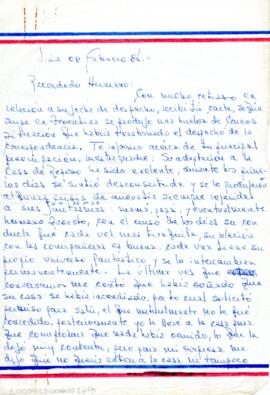 Viña 06 Febrero 86.-
Recordado Hermano:
Con mucho retraso en
relación a su fecha de despacho, recibí tu carta, según
supe en se produjo una huelga de Correos
situación que había trastornado el despacho de la
correspondencia. Te informo acerca de tu principal
preocupación, nuestra madre: Su adaptación a la
Casa de Reposo ha sido excelente, durante los prime-
ros días se sintió desconcertada y se le produjeron
algunas crisis de angustia siempre ligadas
a sus fantasmas: mamá, papá, y eventualmente
hermano Jacobo, con el curso de los días su con-
ducta fue cada vez más tranquila, su relación
con las compañeras es buena, cada una tiene su
propio universo fantástico y se lo intercambian
permanentemente. La última vez que
conversamos me contó que había soñado que
su casa se había incendiado, para lo cual solicitó
permiso para salir, el que naturalmente no le fue
concedido, posteriormente yo la llevé a la casa para
que comprobara que nada había ocurrido, lo que la
dejó muy contenta, pero para mi sorpresa me
dijo que no quería estar en la casa ni tampoco